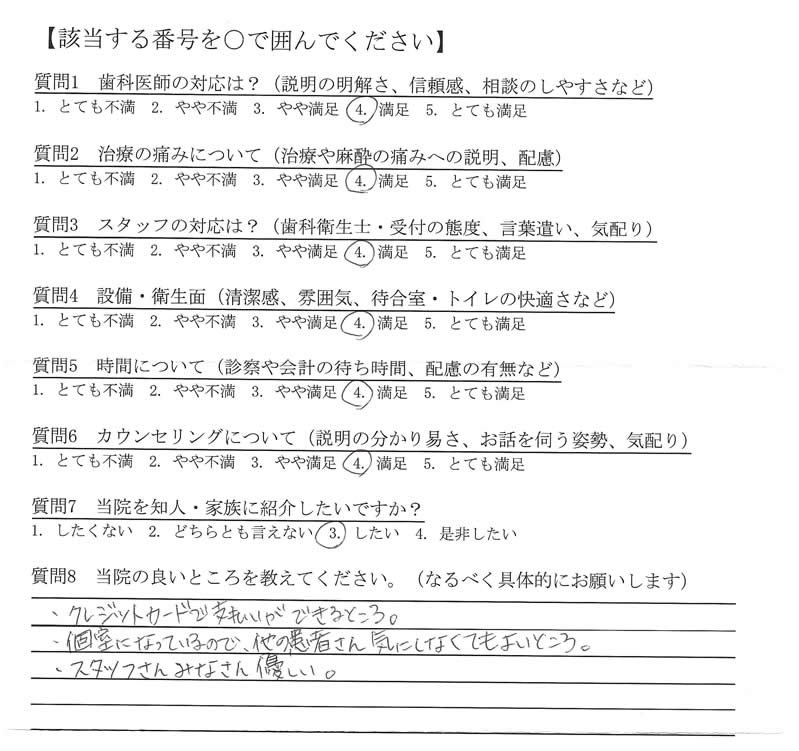 【該当する番号を○で囲んでください】
質問1 歯科医師の対応は？（説明の明解さ、信頼感、相談のしやすさなど）
1. とても不満 2. やや不満 3. やや満足 4. 満足 5. とても満足
質問2 治療の痛みについて（治療や麻酔の痛みへの説明、配慮）
1. とても不満 2. やや不満 3. やや満足 4. 満足 5. とても満足
質問3 スタッフの対応は？（歯科衛生士・受付の態度、言葉遣い、気配り）
1. とても不満 2. やや不満 3. やや満足 4. 満足 5. とても満足
質問4 設備・衛生面（清潔感、雰囲気、待合室・トイレの快適さなど）
1. とても不満 2. やや不満 3. やや満足 4. 満足 5. とても満足
質問5 時間について（診察や会計の待ち時間、配慮の有無など）
1. とても不満 2. やや不満 3. やや満足 4. 満足 5. とても満足
質問6 カウンセリングについて（説明の分かり易さ、お話を伺う姿勢、気配り）
1. とても不満 2. やや不満 3. やや満足 4. 満足 5. とても満足
質問7 当院を知人・家族に紹介したいですか？
1. したくない 2. どちらとも言えない 3. したい 4. 是非したい
質問8 当院の良いところを教えてください。（なるべく具体的にお願いします）
・クレジットカードで支払いができるところ。
・個室になっているので、他の患者さん気にしなくてもよいところ。
・スタッフさんみなさん優しい。